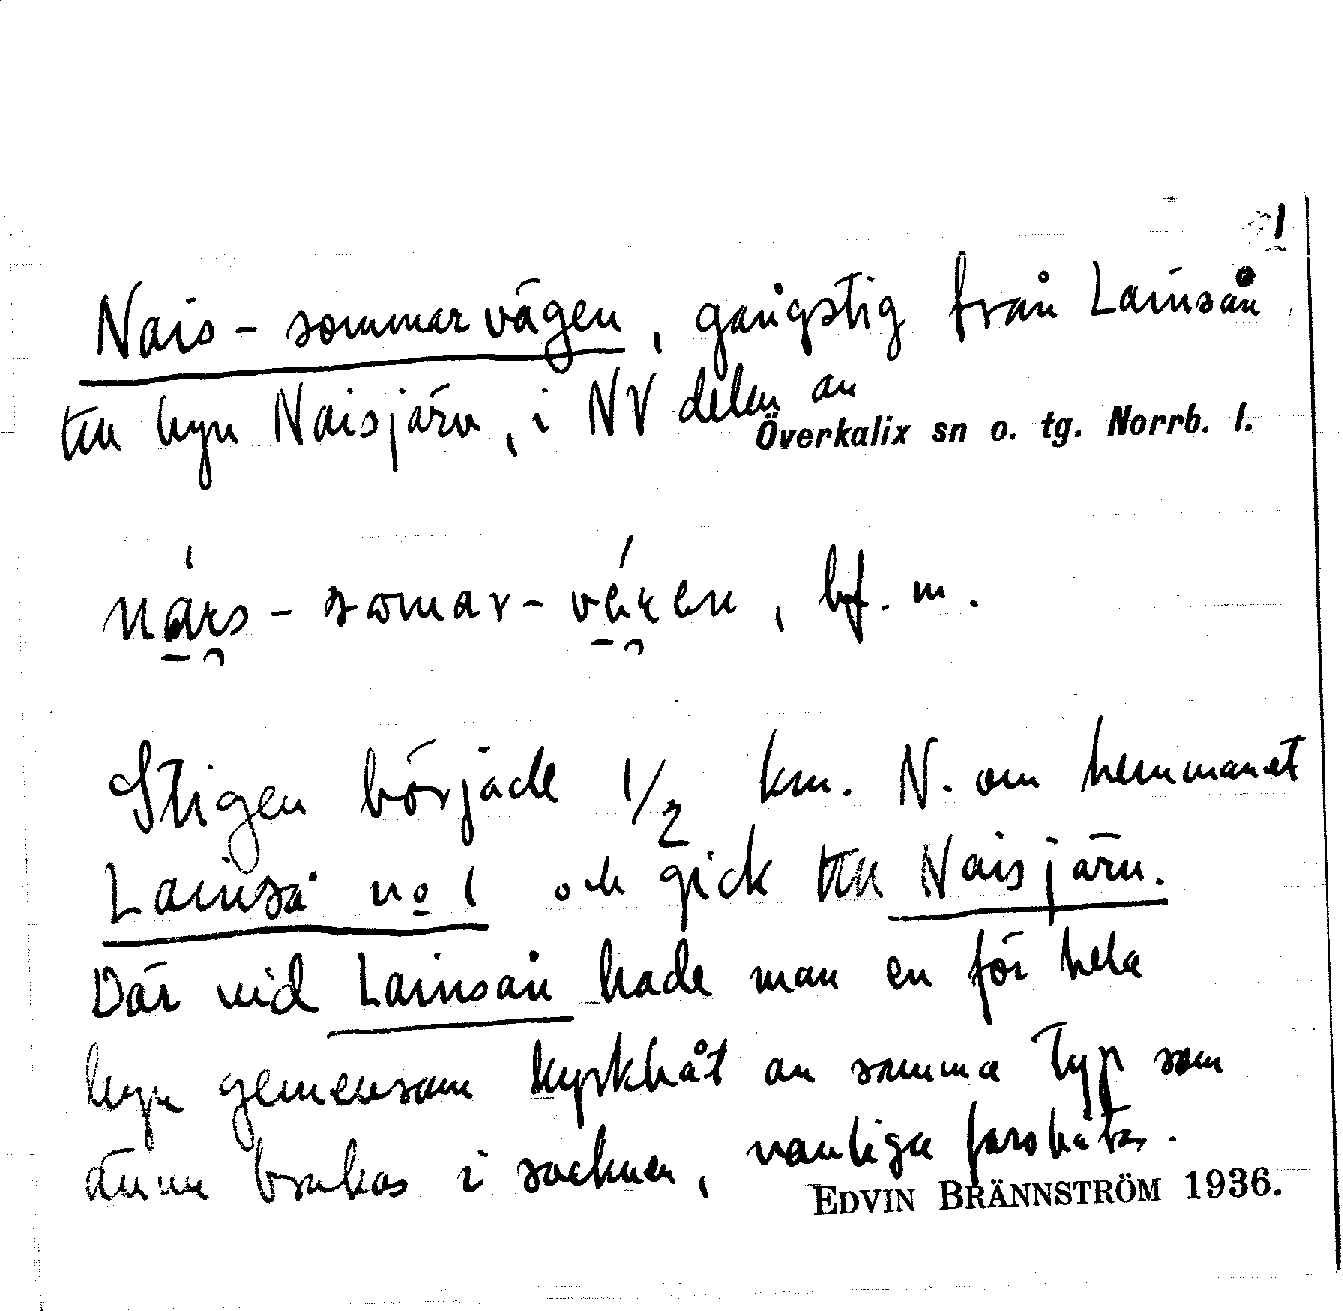 1
Nais-sommarvägen, gångstig från Lainsån
till byn Naisjärv, i NV delen av
Överkalix sn o. tg. Norrb. l.
-somar- , bf. m.
Stigen började 1/2 km. N. om hemmanet
Lainså no 1 och gick till Naisjärv.
Där vid Lainsån hade man en för hela
byn gemensam kyrkbåt av samma typ som
ännu brukas i socknen, vanliga forsbåtar.
EDVIN BRÄNNSTRÖM 1936.